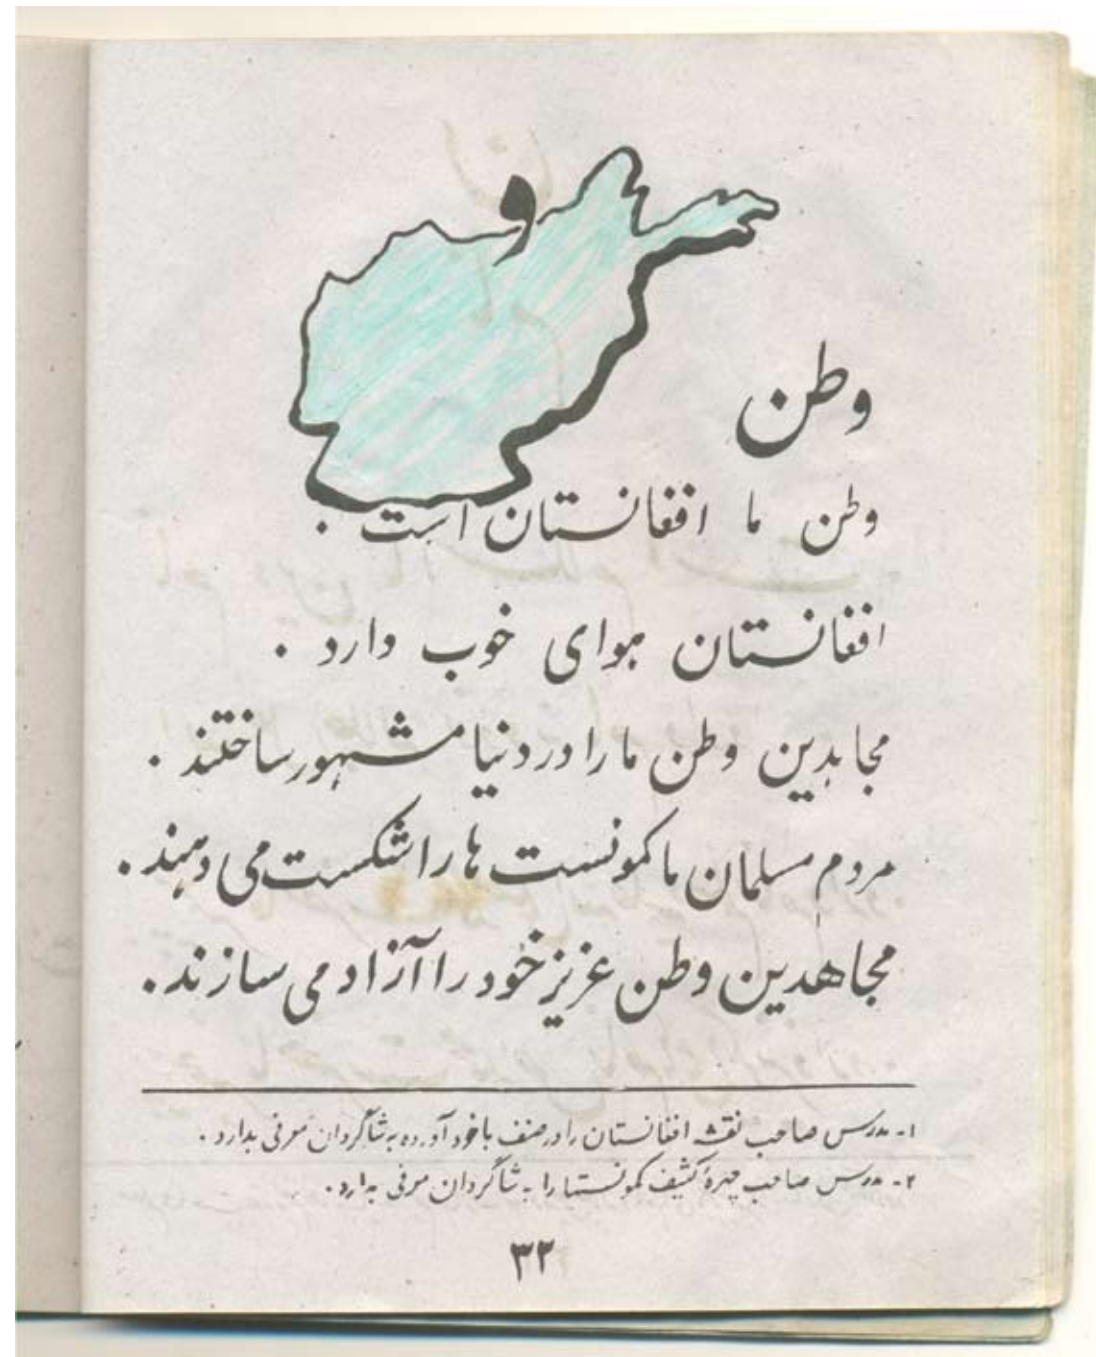 و
وطن
وطن ما افغانستان است .
افغانستان هوای خوب دارد .
مجاهدین وطن ما را در دنیا مشهور ساختند .
مردم مسلمان ما کمونست ها را شکست می دهند .
مجاهدین وطن عزیز خود را آزاد می سازند .
۱- مدرس صاحب نقشه افغانستان را در صنف با خود آورده به شاگردان معرفی بدارد .
۲- مدرس صاحب چهرهٔ کثیف کمونستها را به شاگردان معرفی بدارد .
۳۲